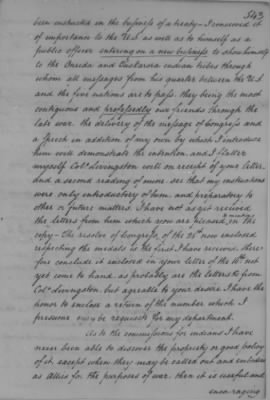 543
been instructed on the business of a treaty. I conceived it
of importance to the U.S as well as to himself as a
public officer entering on a new business to shew himself
to the Oneida and Tuskarora indian tribes through
whom all messages from his quarter between the U.S
and the five nations are to pass. they being the most
contiguous and professedly our friends through the
late war. the delivery of the message of Congress and
a speech in addition of my own by which I introduce
him will demonstrate the intention, and I flatter
myself Colo. Livingston will on receipt of your letter
and a second reading of mine see that my instructions
were only introductory to him and preparatory to
other or future matters. I have not as yet received
the letters from them which you are pleased in
copy. The resolve of Congress of the 20th now enclosed
respecting the medals is the first I have received, there-
fore conclude it enclosed in your letter of the not
yet come to hand, as probably are the letters from
Colo. Livingston but agreable to your desire I have the
honor to enclose a return of the number which I
presume may be requisite for my department.
As to the commissions for indians I have
never been able to discover the propriety or good policy
of it except when they may be called out and embodied
as Allies for the purposes of war. then it is useful and
encouraging